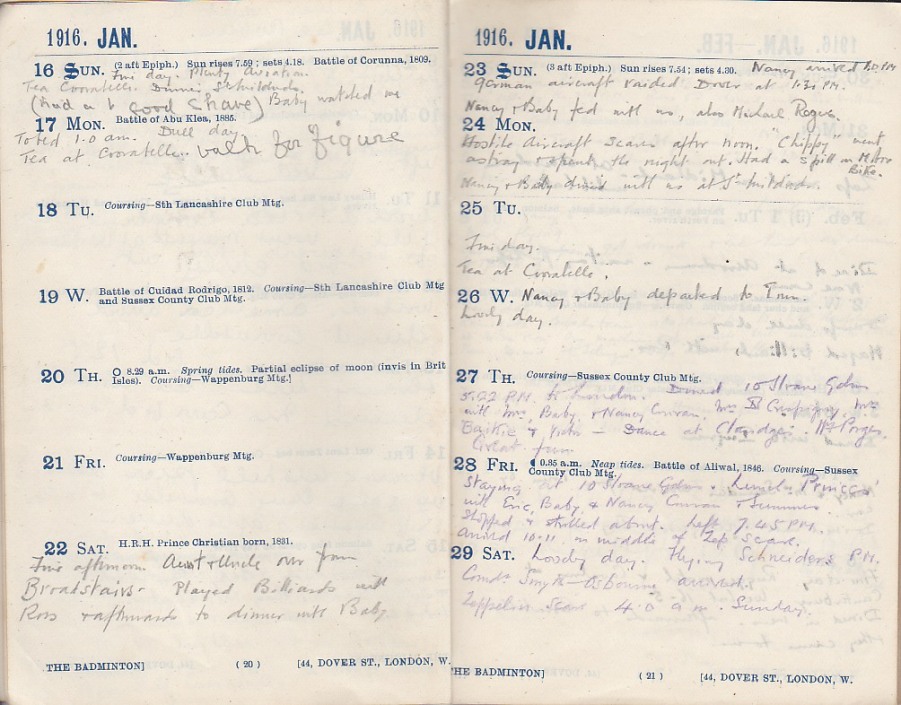 1916. JAN.
16 SUN. (2 aft Epiph.) Sun rises 7.59; sets 4.18. Battle of Corunna, 1809.
Fine day. Plenty Aviation.
Tea Coovatelle. Dinner St. Mildreds.
(Had a b good shave) Baby watched me
17 MON. Battle of Abu Klea, 1885.
To bed 1.0 am. Dull day
Tea at Coovatelle. walk for figure
18 TU. Coursing—Sth Lancashire Club Mtg.
19 W. Battle of Cuidad Rodrigo, 1812. Coursing—Sth Lancashire Club Mtg
and Sussex County Club Mtg.
20 TH. O 8.29 a.m. Spring tides. Partial eclipse of moon (invis in Brit
Isles). Coursing—Wappenburg Mtg.
21 FRI. Coursing—Wappenburg Mtg.
22 SAT. H.R.H. Prince Christian born, 1831.
Fine afternoon. Aunt & Uncle over from
Broadstairs. Played Billiards with
Ross & afterwards to dinner with Baby.
THE BADMINTON] (20) [44, DOVER ST., LONDON, W.
1916. JAN.
23 SUN. (3 aft Epiph.) Sun rises 7.54; sets 4.30. Nancy arrived PM
German aircraft raided Dover at 1.31 PM.
Nancy & Baby fed with us, also Michael
24 MON.
Hostile Aircraft Scares after noon. "Chippy" went
astray & spent the night out. Had a spill on Motor
Bike.
Nancy & Baby dined with us at St. Mildreds.
25 TU.
Fine day.
Tea at Coovatelle.
26 W. Nancy & Baby departed to Town.
Lovely day.
27 TH. Coursing—Sussex County Club Mtg.
5.22 P.M. to London. Dined 10 Sloane Gdns
with Mrs, Baby & Nancy Curran, Mrs
& Victor — Dance at Claridges.
Great fun.
28 FRI. 0.35 a.m. Neap tides. Battle of Aliwal, 1846. Coursing—Sussex
County Club Mtg.
Staying at 10 Sloane Gdns. Lunch Princes'
with Eric, Baby, & Nancy Curran
Shopped & strolled about. Left 7.45 P.M.
arrived 10.11 in middle of Zep Scare.
29 SAT. Lovely day. Flying Schneiders P.M.
Comdr Smyth-Osbourne arrived.
Zeppelin Scare 4.0 a m. Sunday.
THE BADMINTON] (21) [44, DOVER ST., LONDON, W.